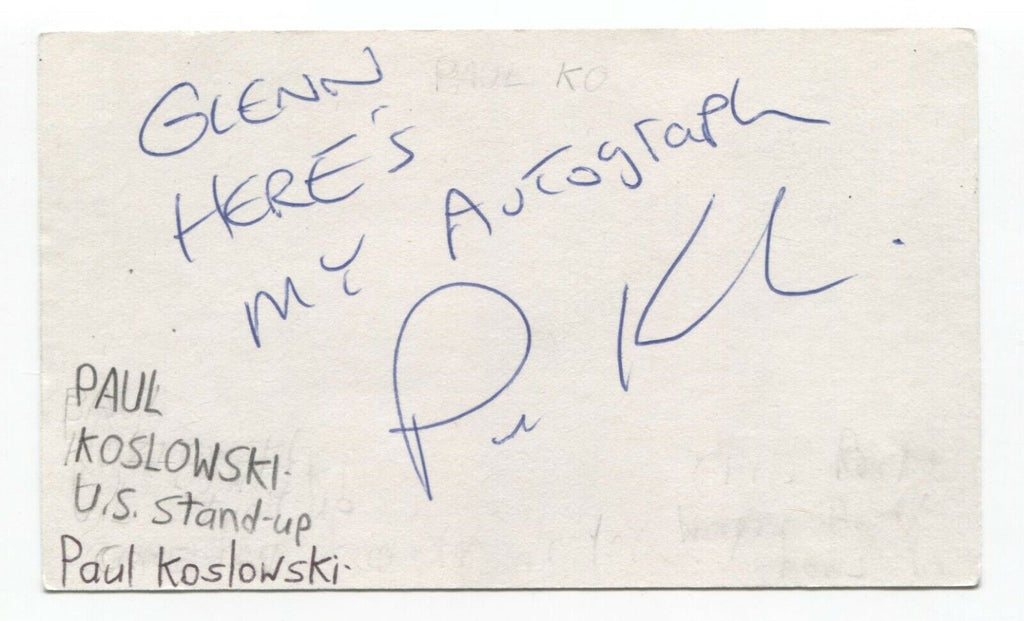 PAUL KO
GLENN
HERE'S
MY AUTOGRAPH
PAUL
KOSLOWSKI.
U.S. Stand-up
Paul Koslowski.